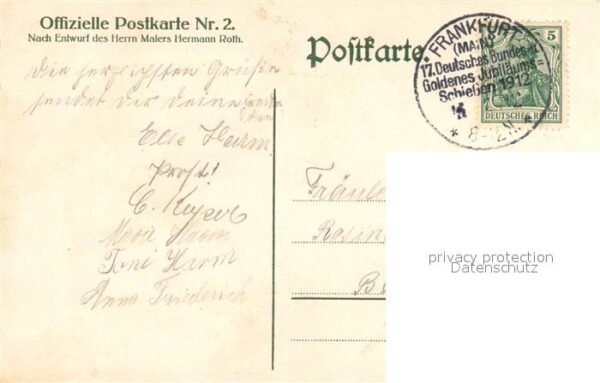 Offizielle Postkarte Nr. 2.
Nach Entwurf des Herrn Malers Hermann Roth.
Postkarte.
FRANKFURT
(MAIN)
17. Deutsches Bundes- u.
Goldenes Jubiläums-
Schießen 1912
5
DEUTSCHES REICH
Die herzlichsten Grüße
sendet Dir Deine
Else Harm
Prost!
C. Keyser
Marie Harm
Toni Harm
Anna Friederich
Fräule
B
privacy protection
Datenschutz